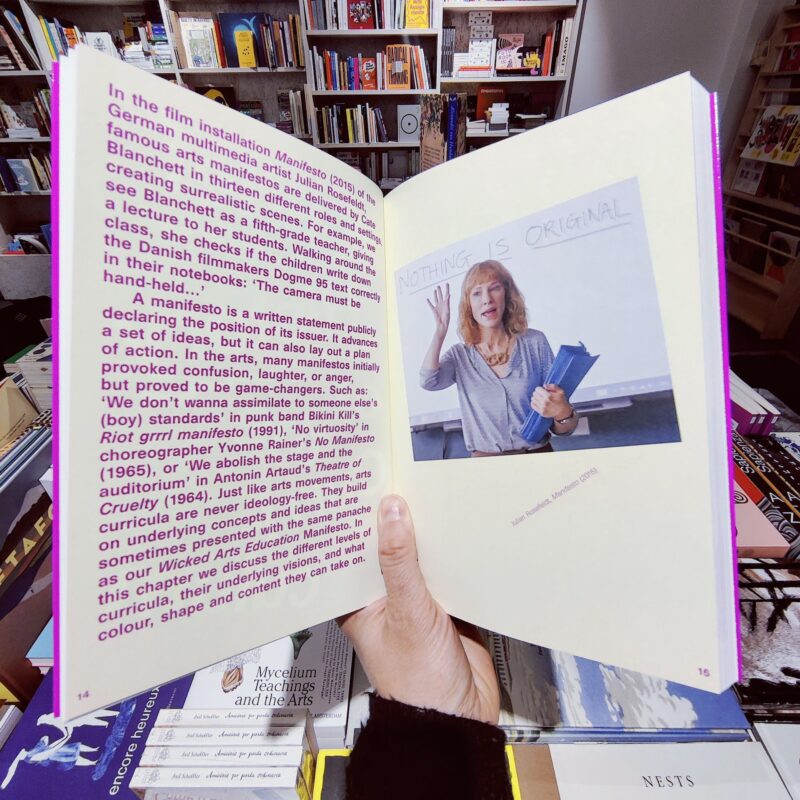 In the film installation Manifesto (2015) of the
German multimedia artist Julian Rosefeldt,
famous arts manifestos are delivered by Cate
Blanchett in thirteen different roles and settings
creating surrealistic scenes. For example, we
see Blanchett as a fifth-grade teacher, giving
a lecture to her students. Walking around the
class, she checks if the children write down
the Danish filmmakers Dogme 95 text correctly
in their notebooks: ‘The camera must be
hand-held…’
A manifesto is a written statement publicly
declaring the position of its issuer. It advances
a set of ideas, but it can also lay out a plan
of action. In the arts, many manifestos initially
provoked confusion, laughter, or anger,
but proved to be game-changers. Such as:
‘We don’t wanna assimilate to someone else’s
(boy) standards’ in punk band Bikini Kill’s
Riot grrrl manifesto (1991), ‘No virtuosity’ in
choreographer Yvonne Rainer’s No Manifesto
(1965), or ‘We abolish the stage and the
auditorium’ in Antonin Artaud’s Theatre of
Cruelty (1964). Just like arts movements, arts
curricula are never ideology-free. They build
on underlying concepts and ideas that are
sometimes presented with the same panache
as our Wicked Arts Education Manifesto. In
this chapter we discuss the different levels of
curricula, their underlying visions, and what
colour, shape and content they can take on.
14
NOTHING IS ORIGINAL
Julian Rosefeldt, Manifesto (2015)
16
Mycelium
Teachings
and the Arts
encore heureux
NESTS